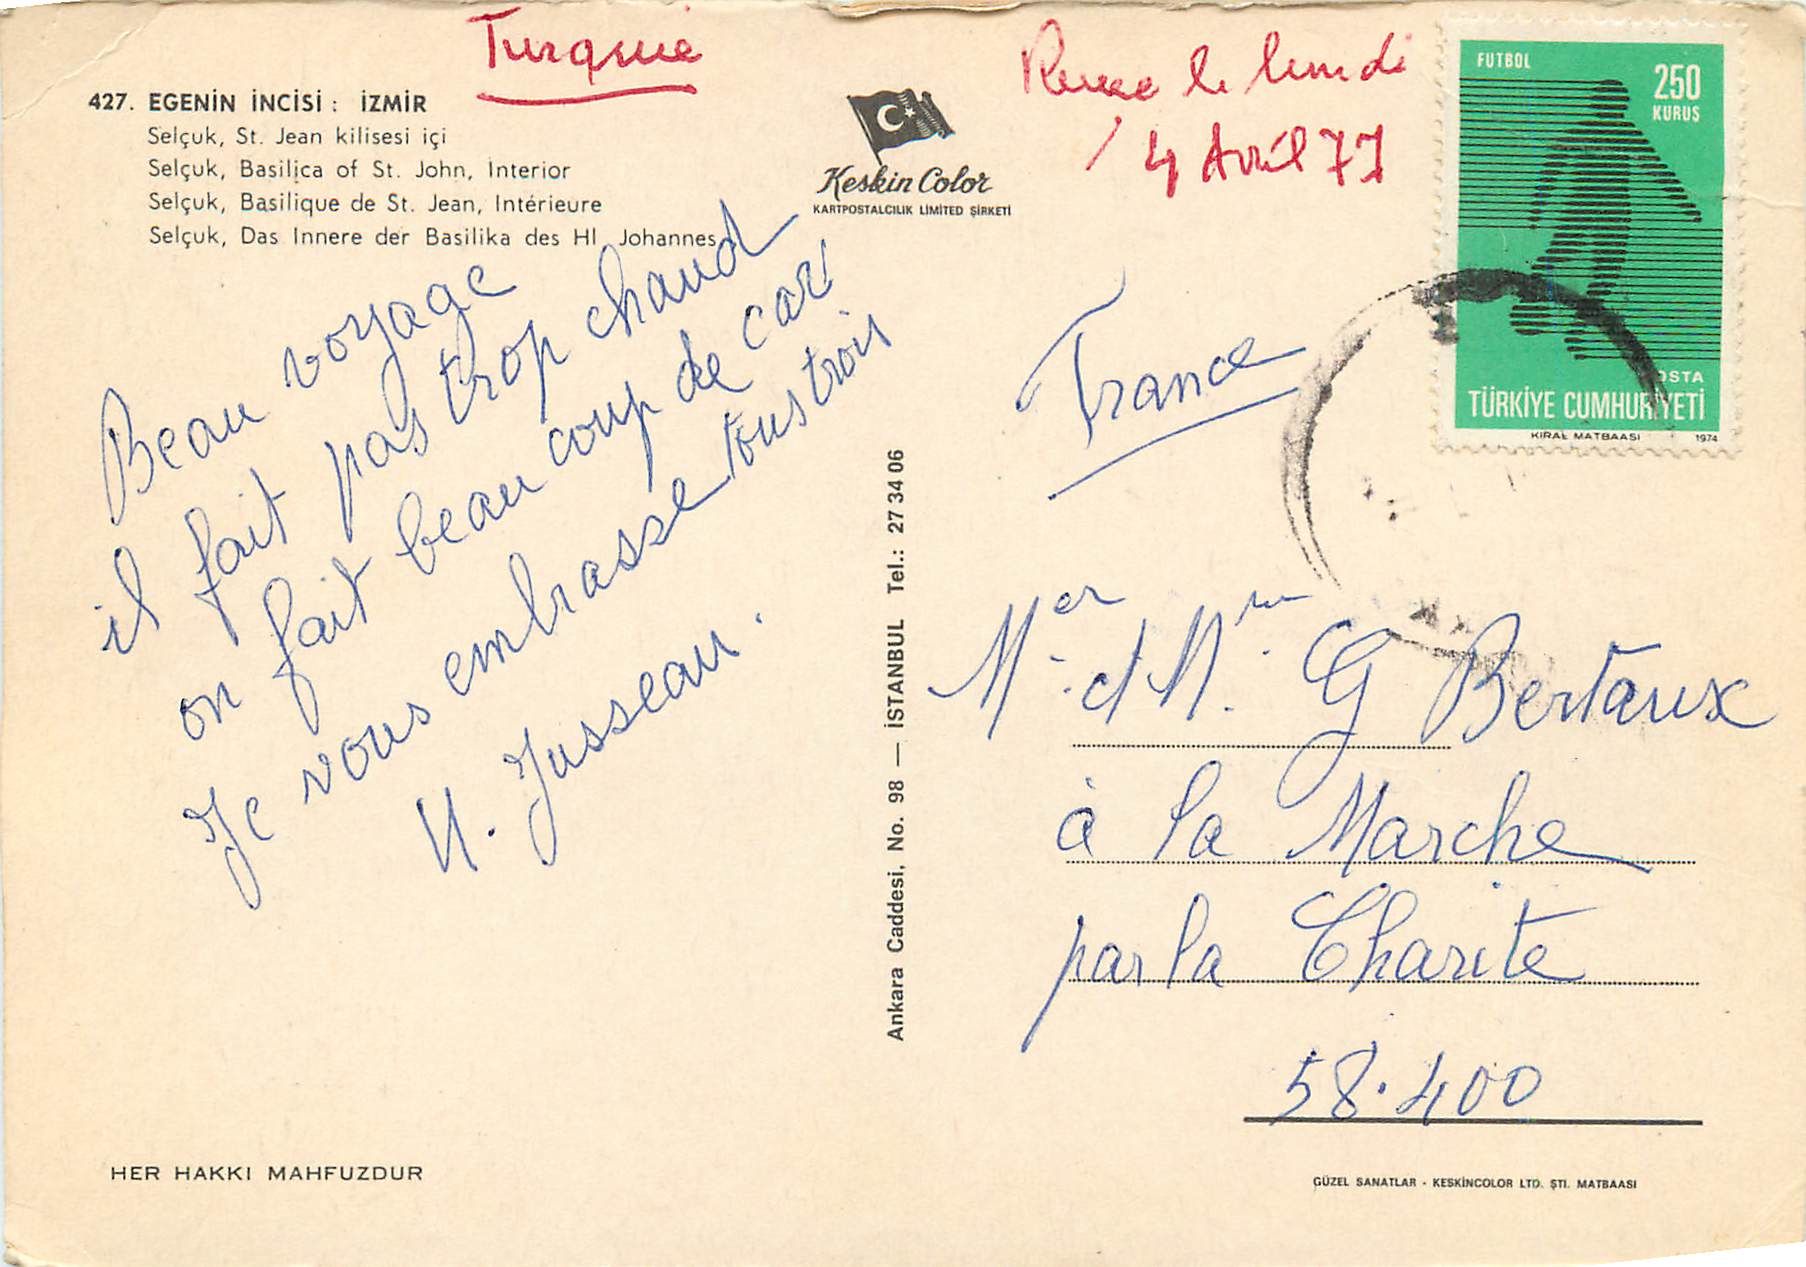 Turquie
Reçue le lundi
4 Avril 77
427. EGENİN İNCİSİ : İZMİR
Selçuk, St. Jean kilisesi içi
Selçuk, Basilica of St. John, Interior
Selçuk, Basilique de St. Jean, Intérieure
Selçuk, Das Innere der Basilika des Hl. Johannes
Keskin Color
KARTPOSTALCILIK LİMİTED ŞİRKETİ
FUTBOL
250
KURUŞ
POSTA
TÜRKİYE CUMHURİYETİ
KIRAL MATBAASI 1974
Beau voyage
il fait pas trop chaud
on fait beaucoup de car
Je vous embrasse tous trois
Jusseau.
Ankara Caddesi, No. 98 — İSTANBUL Tel.: 27 34 06
France
Mer et Mme G Bertaux
à la Marche
par la Charite
58.400
HER HAKKI MAHFUZDUR
GÜZEL SANATLAR - KESKİNCOLOR LTD. ŞTİ. MATBAASI